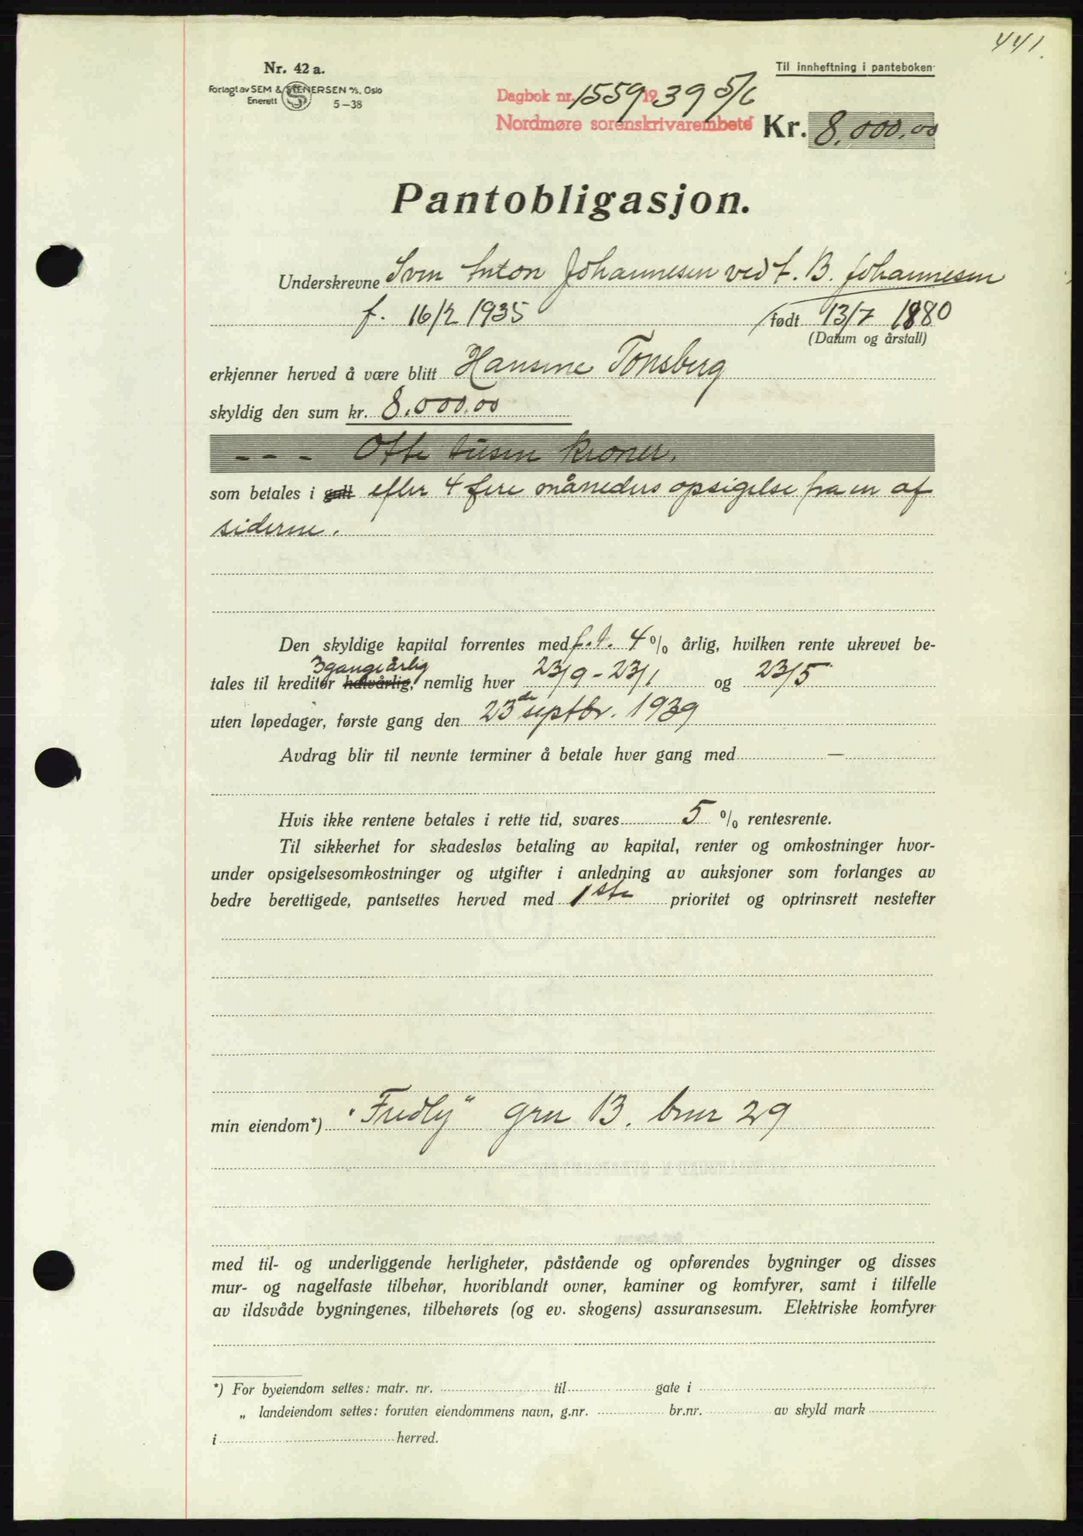 441.
Nr. 42 a.
Til innheftning i panteboken
Forlagt av SEM & STENERSEN A/S, Oslo
Enerett 5-38
Dagbok nr. 1559 1939 5/6
Nordmøre sorenskrivarembete
Kr. 8.000.00
Pantobligasjon.
Underskrevne Sven Anton Johannesen ved f. B. Johannesen
f. 16/2 1935 født 13/7 1880
(Datum og årstall)
erkjenner herved å være blitt Hansine Tonsberg
skyldig den sum kr. 8.000.00
- - - Otte tusen kroner.
som betales i gull efter 4 fire måneders opsigelse fra en af
siderne.
Den skyldige kapital forrentes med f.t. 4 % årlig, hvilken rente ukrevet be-
3 gange årlig
tales til kreditor halvårlig, nemlig hver 23/9 - 23/1 og 23/5
uten løpedager, første gang den 23de septbr. 1939
Avdrag blir til nevnte terminer å betale hver gang med —
Hvis ikke rentene betales i rette tid, svares 5 % rentesrente.
Til sikkerhet for skadesløs betaling av kapital, renter og omkostninger hvor-
under opsigelsesomkostninger og utgifter i anledning av auksjoner som forlanges av
bedre berettigede, pantsettes herved med 1ste prioritet og optrinsrett nestefter
min eiendom*) "Fredly" gnr 13. bnr 29
med til- og underliggende herligheter, påstående og opførendes bygninger og disses
mur- og nagelfaste tilbehør, hvoriblandt ovner, kaminer og komfyrer, samt i tilfelle
av ildsvåde bygningenes, tilbehørets (og ev. skogens) assuransesum. Elektriske komfyrer
*) For byeiendom settes: matr. nr. til gate i
„ landeiendom settes: foruten eiendommens navn, g.nr. br.nr. av skyld mark
i herred.